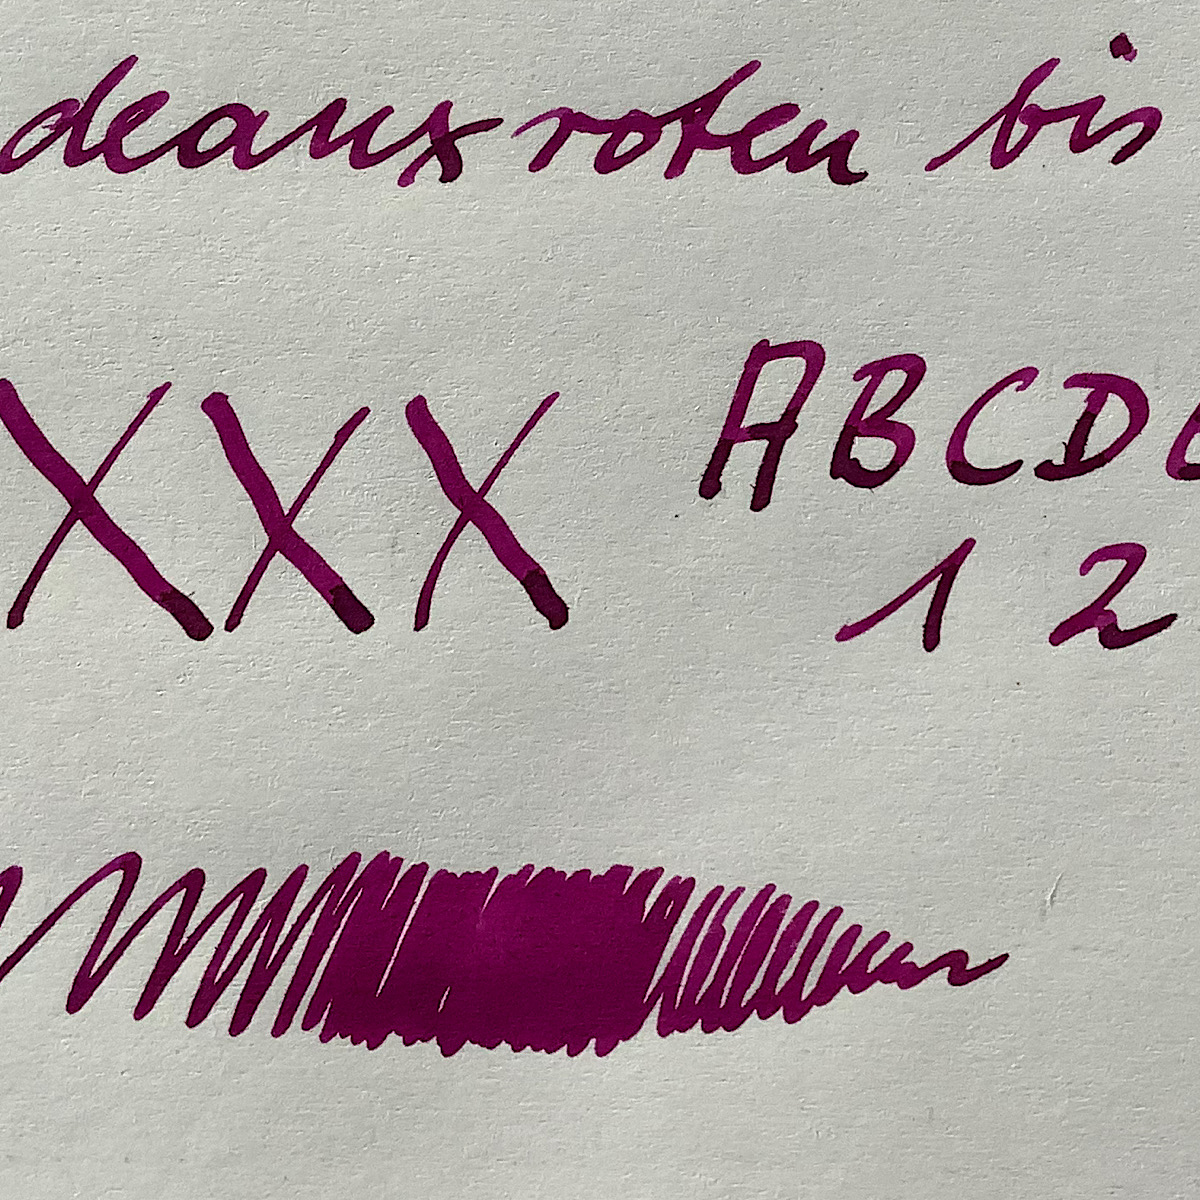 deaux roten bis
XXX ABCDE
1 2